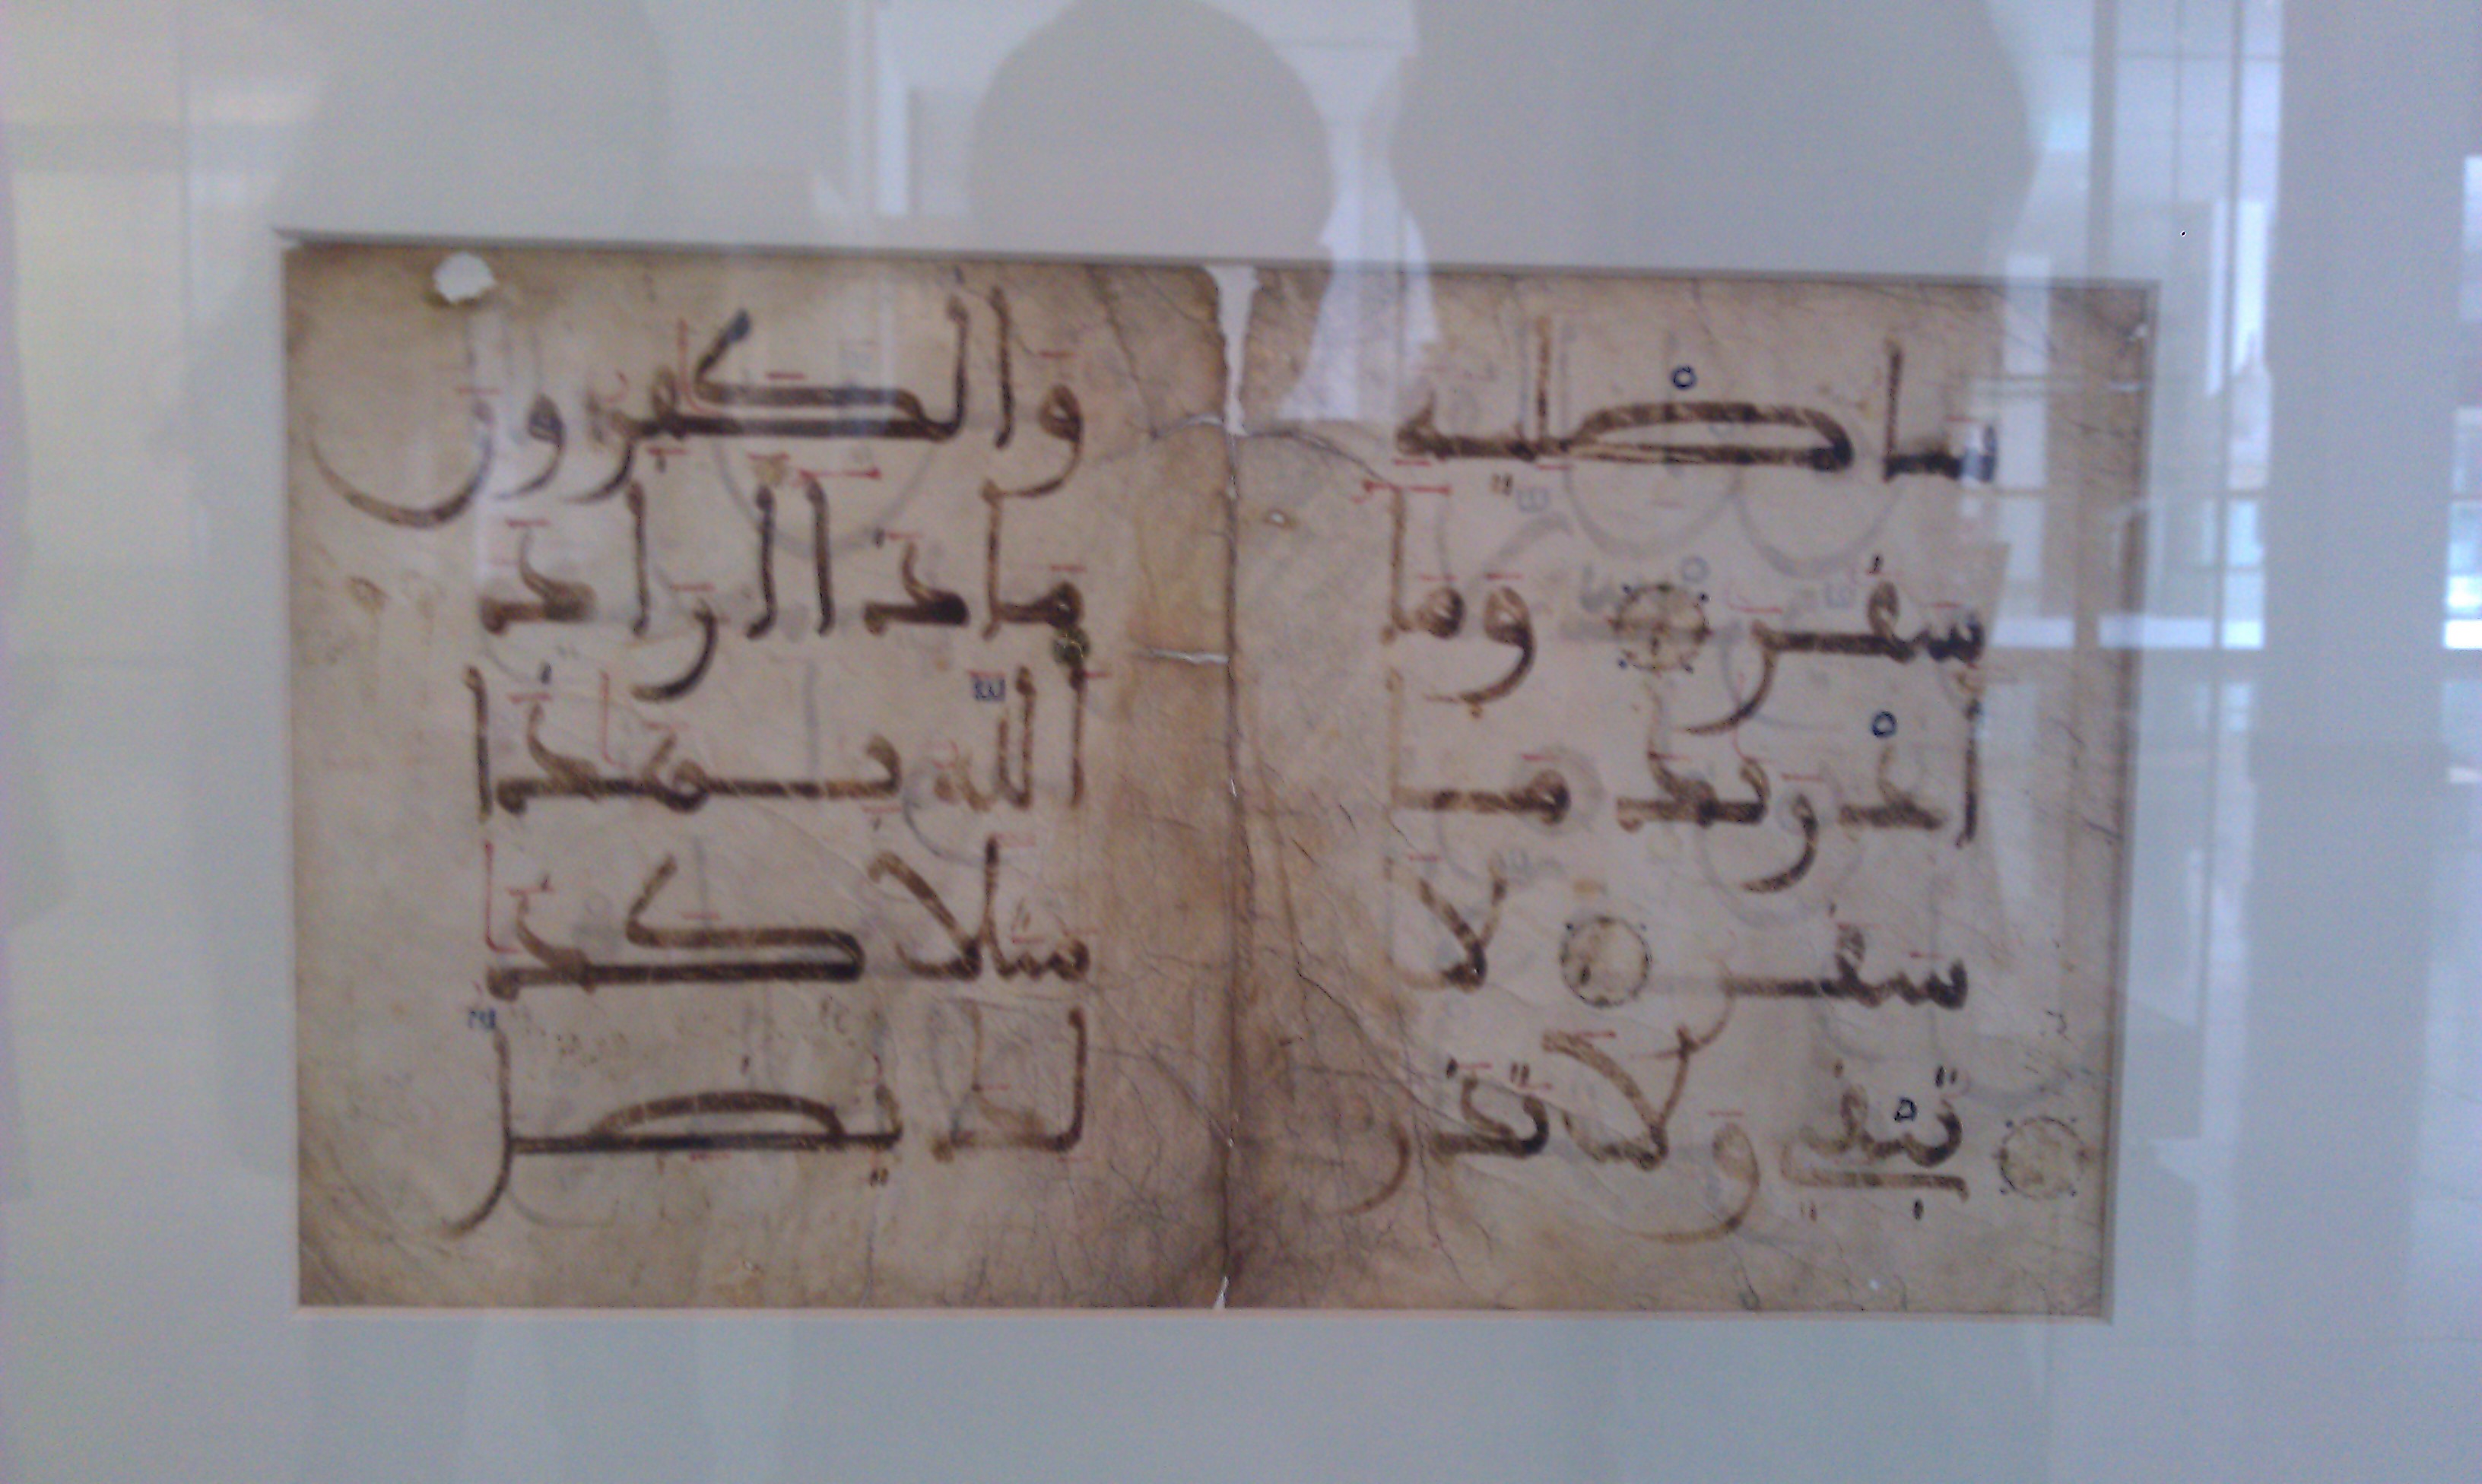 سأصليه
سقر وما
أدريك ما
سقر لا
تبقي ولا تذر
والكفرون
ماذا أراد
الله بهذا
مثلا كذ
لك يضل